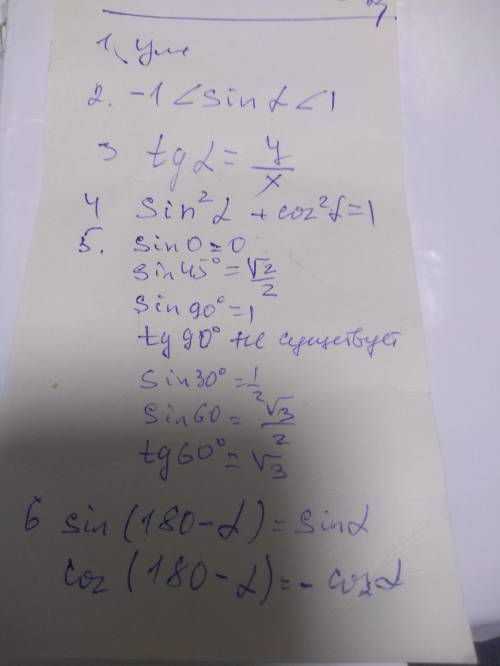 1.
2. -1 < sin α < 1
3 tg α = y/x
4 sin² α + cos² α = 1
5. sin 0 = 0
sin 45° = √2/2
sin 90° = 1
tg 90° не существует
sin 30° = 1/2
sin 60 = √3/2
tg 60° = √3
6 sin (180 - α) = sin α
cos (180 - α) = - cos α